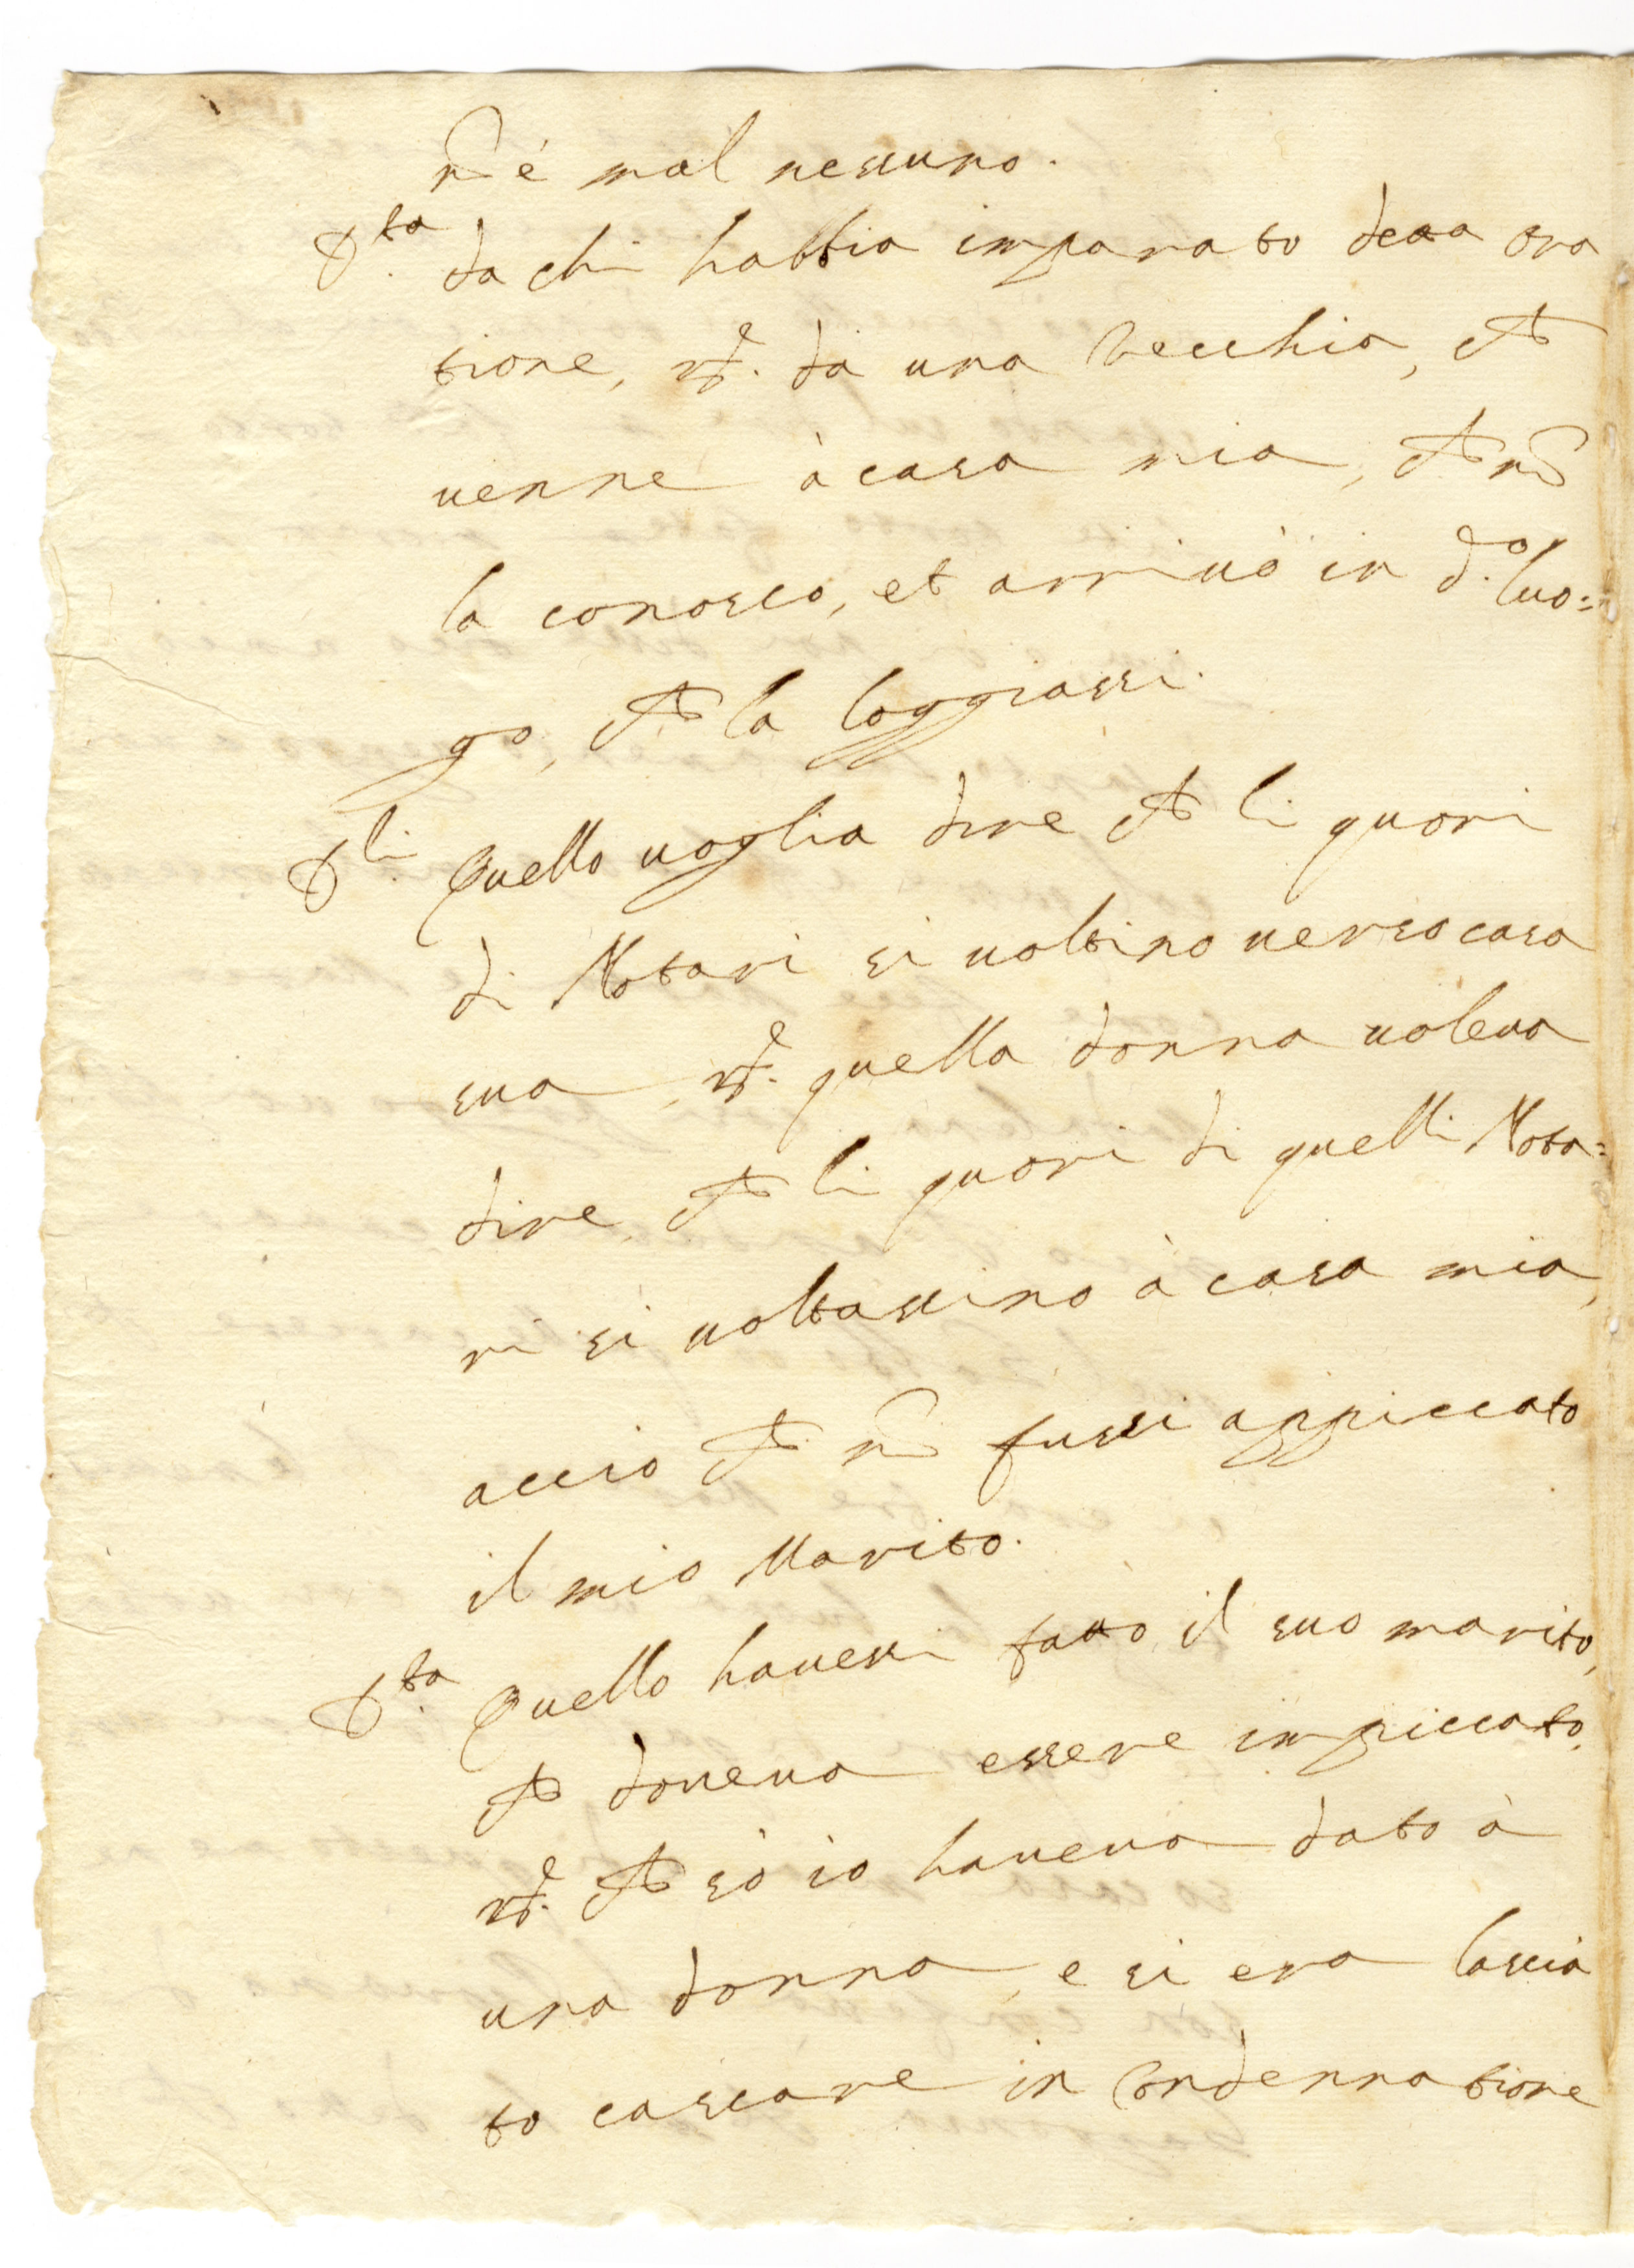 nō é mal nessuno.
D.ta da chi habbia imparato detta ora
tione, rē. da una Vecchia, che
venne à casa mia, che nō
la conosco, et arrivò in d.o luo=
go, che la loggiassi.
D.li Quello voglia dire che li quori
di Notari si voltino verso casa
sua, rē. quella donna voleva
dire, che li quori di quelli Nota=
ri si voltassino à casa mia,
accio che nō fussi appiccato
il mio Marito.
D.ta Quello havessi fatto il suo marito,
che doveva essere impiccato,
rē. che sò io haveva dato à
una donna, e si era lascia
to cascare in Condennatione